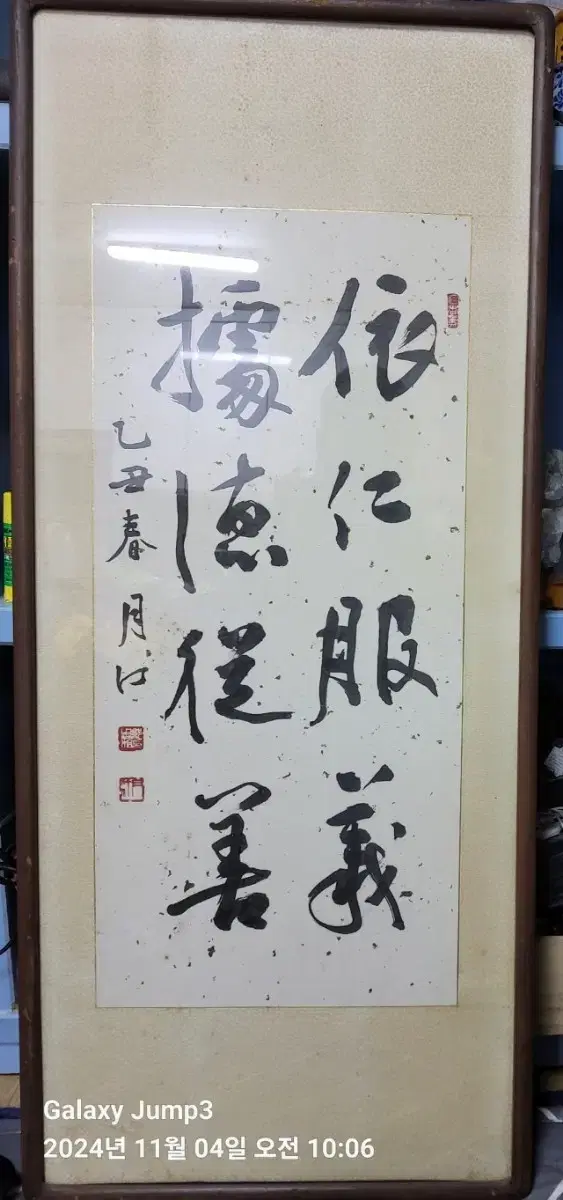 依仁服義
據德從善
乙丑春 月江
Galaxy Jump3
2024년 11월 04일 오전 10:06